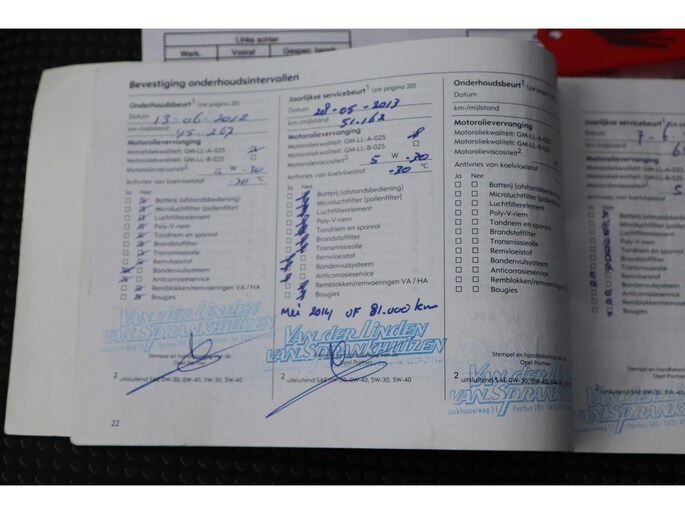 Links achter
Werk. Vooraf Gespec. bereik
Bevestiging onderhoudsintervallen
Onderhoudsbeurt¹ (zie pagina 20)
Datum 13-06-2012
km-/mijlstand
45-267
Motorolievervanging
Motoroliekwaliteit: GM-LL-A-025
Motoroliekwaliteit: GM-LL-B-025
Motorolieviscositeit²
5 W -30
Antivries van koelvloeistof
-30 °C
Ja Nee
Batterij (afstandsbediening)
Microluchtfilter (pollenfilter)
Luchtfilterelement
Poly-V-riem
Tandriem en spanrol
Brandstoffilter
Transmissieolie
Remvloeistof
Bandenvulsysteem
Anticorrosieservice
Remblokken/remvoeringen VA / HA
Bougies
VAN DER LINDEN
VAN SPRANKHUIZEN
Stempel en handtekening van de
Opel Partner
2
uitsluitend SAE 0W-30, 0W-40, 5W-30, 5W-40
22
Jaarlijkse servicebeurt¹ (zie pagina 20)
Datum 28-05-2013
km-/mijlstand 51.162
Motorolievervanging
Motoroliekwaliteit: GM-LL-A-025
Motoroliekwaliteit: GM-LL-B-025
Motorolieviscositeit² 5 W -30
Antivries van koelvloeistof -30 °C
Ja Nee
Batterij (afstandsbediening)
Microluchtfilter (pollenfilter)
Luchtfilterelement
Poly-V-riem
Tandriem en spanrol
Brandstoffilter
Transmissieolie
Remvloeistof
Bandenvulsysteem
Anticorrosieservice
Remblokken/remvoeringen VA / HA
Bougies
Mei 2014 OF 81.000 km
VAN DER LINDEN
VAN SPRANKHUIZEN
Opel Partner
2
uitsluitend SAE 0W-30, 0W-40, 5W-30, 5W-40
Onderhoudsbeurt¹ (zie pagina
Datum
km-/mijlstand
Motorolievervanging
Motoroliekwaliteit: GM-LL-A-025
Motoroliekwaliteit: GM-LL-B-025
Motorolieviscositeit² W
Antivries van koelvloeistof
Ja Nee
Batterij (afstandsbediening)
Microluchtfilter (pollenfilter)
Luchtfilterelement
Poly-V-riem
Tandriem en spanrol
Brandstoffilter
Transmissieolie
Remvloeistof
Bandenvulsysteem
Anticorrosieservice
Remblokken/remvoeringen VA / HA
Bougies
Stempel en handtekening van de
Opel Partner
2
uitsluitend SAE 0W-30, 0W-40, 5W-30, 5W-40
VAN DER LINDEN
VAN SPRANKHUIZEN
Postbus 280
Jaarlijkse servicebeurt¹
Datum 7-6
km-/mijlstand
Motorolievervanging
Motoroliekwaliteit: GM-LL
Motoroliekwaliteit: GM-LL
Motorolieviscositeit²
Antivries van koelvloeistof
Ja Nee
Batterij (afstands
Microluchtfilter
Luchtfilterelement
Poly-V-riem
Tandriem en
Brandstoffilter
Transmissieolie
Remvloeistof
Bandenvulsys
Anticorrosies
Remblokken
Bougies
Stempel en handteken
Opel Partner
2
uitsluitend SAE 0W-30, 0W-40, 5W-
VAN DER LIND
VAN SPRANK
Postbus 280